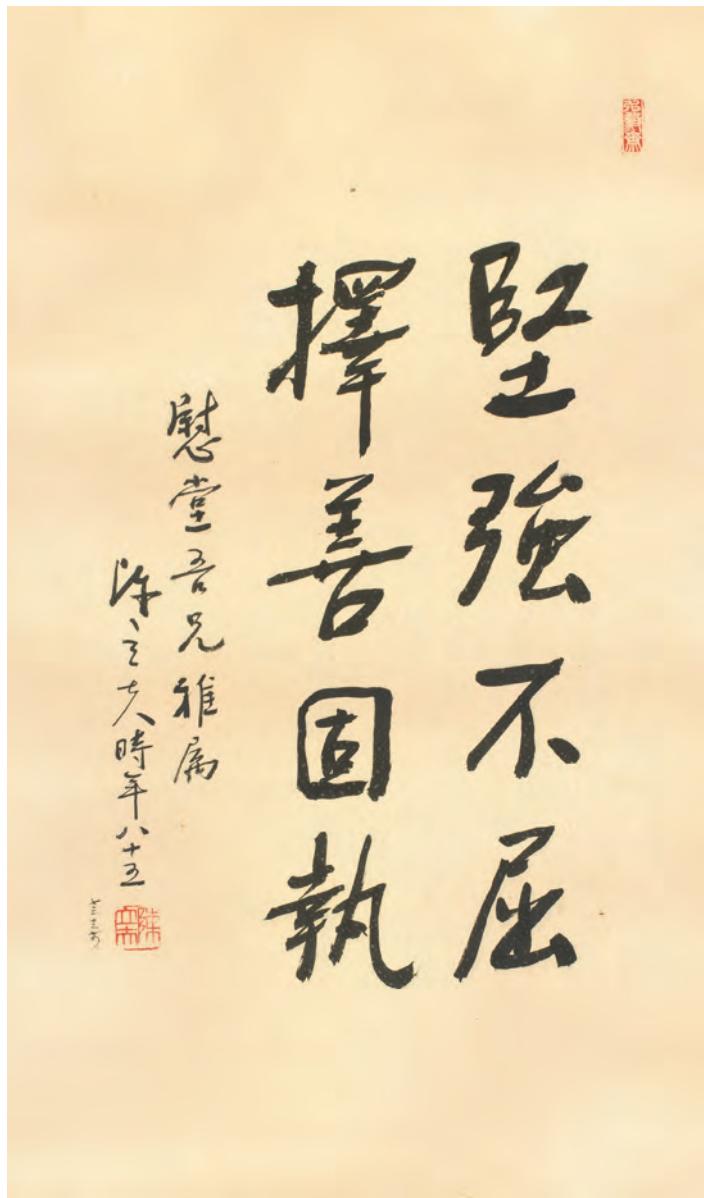 堅強不屈
擇善固執
慰堂吾兄雅屬
陳立夫時年八十五